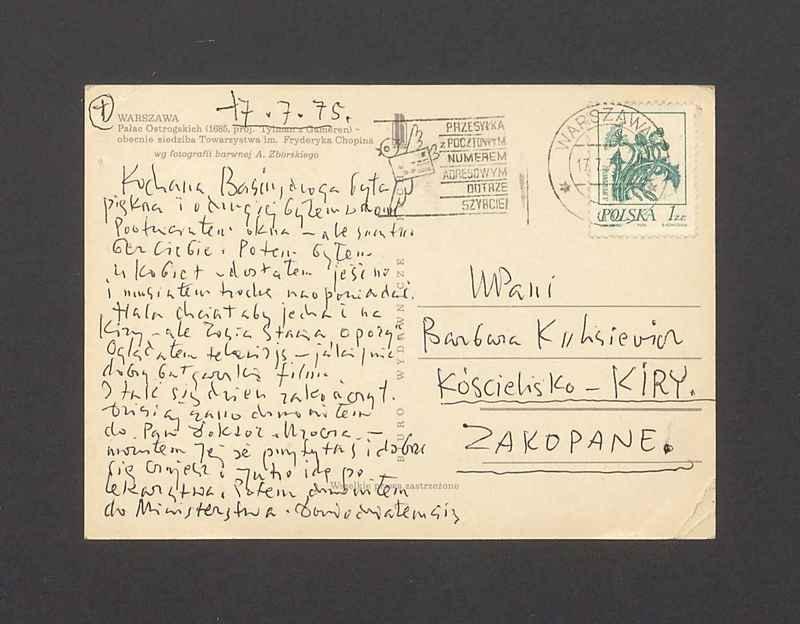 +
17.7.75.
WARSZAWA
Pałac Ostrogskich (1685, proj. Tylman z Gameren) -
obecnie siedziba Towarzystwa im. Fryderyka Chopina
wg fotografii barwnej A. Zborskiego
PRZESYŁKA
z POCZTOWYM
NUMEREM
ADRESOWYM
DOTRZE
SZYBCIEJ
WARSZAWA
17.7
POLSKA 1 ZŁ
Kochana Basiu, droga była
piękna i o drugiej byłem w domu
Pootwierałem okna - ale smutno
bez Ciebie. Potem byłem
u kobiet - dostałem jeść no
i musiałem trochę naopowiadać.
Hala chciałaby jechać na
Kiry - ale Zosia stawia opory.
Oglądałem telewizję - jakiś nie
dobry bułgarski film.
I tak się dzień zakończył.
Dzisiaj rano dzwoniłem
do Pani doktor
mówiłem jej że przytyłaś i dobrze
się czujesz i jutro idę po
lekarstwa. Potem dzwoniłem
do Ministerstwa. Dowiedziałem się
BIURO WYDAWNICZE
Wszelkie prawa zastrzeżone
WPani
Barbara
Kościelisko - KIRY.
ZAKOPANE.